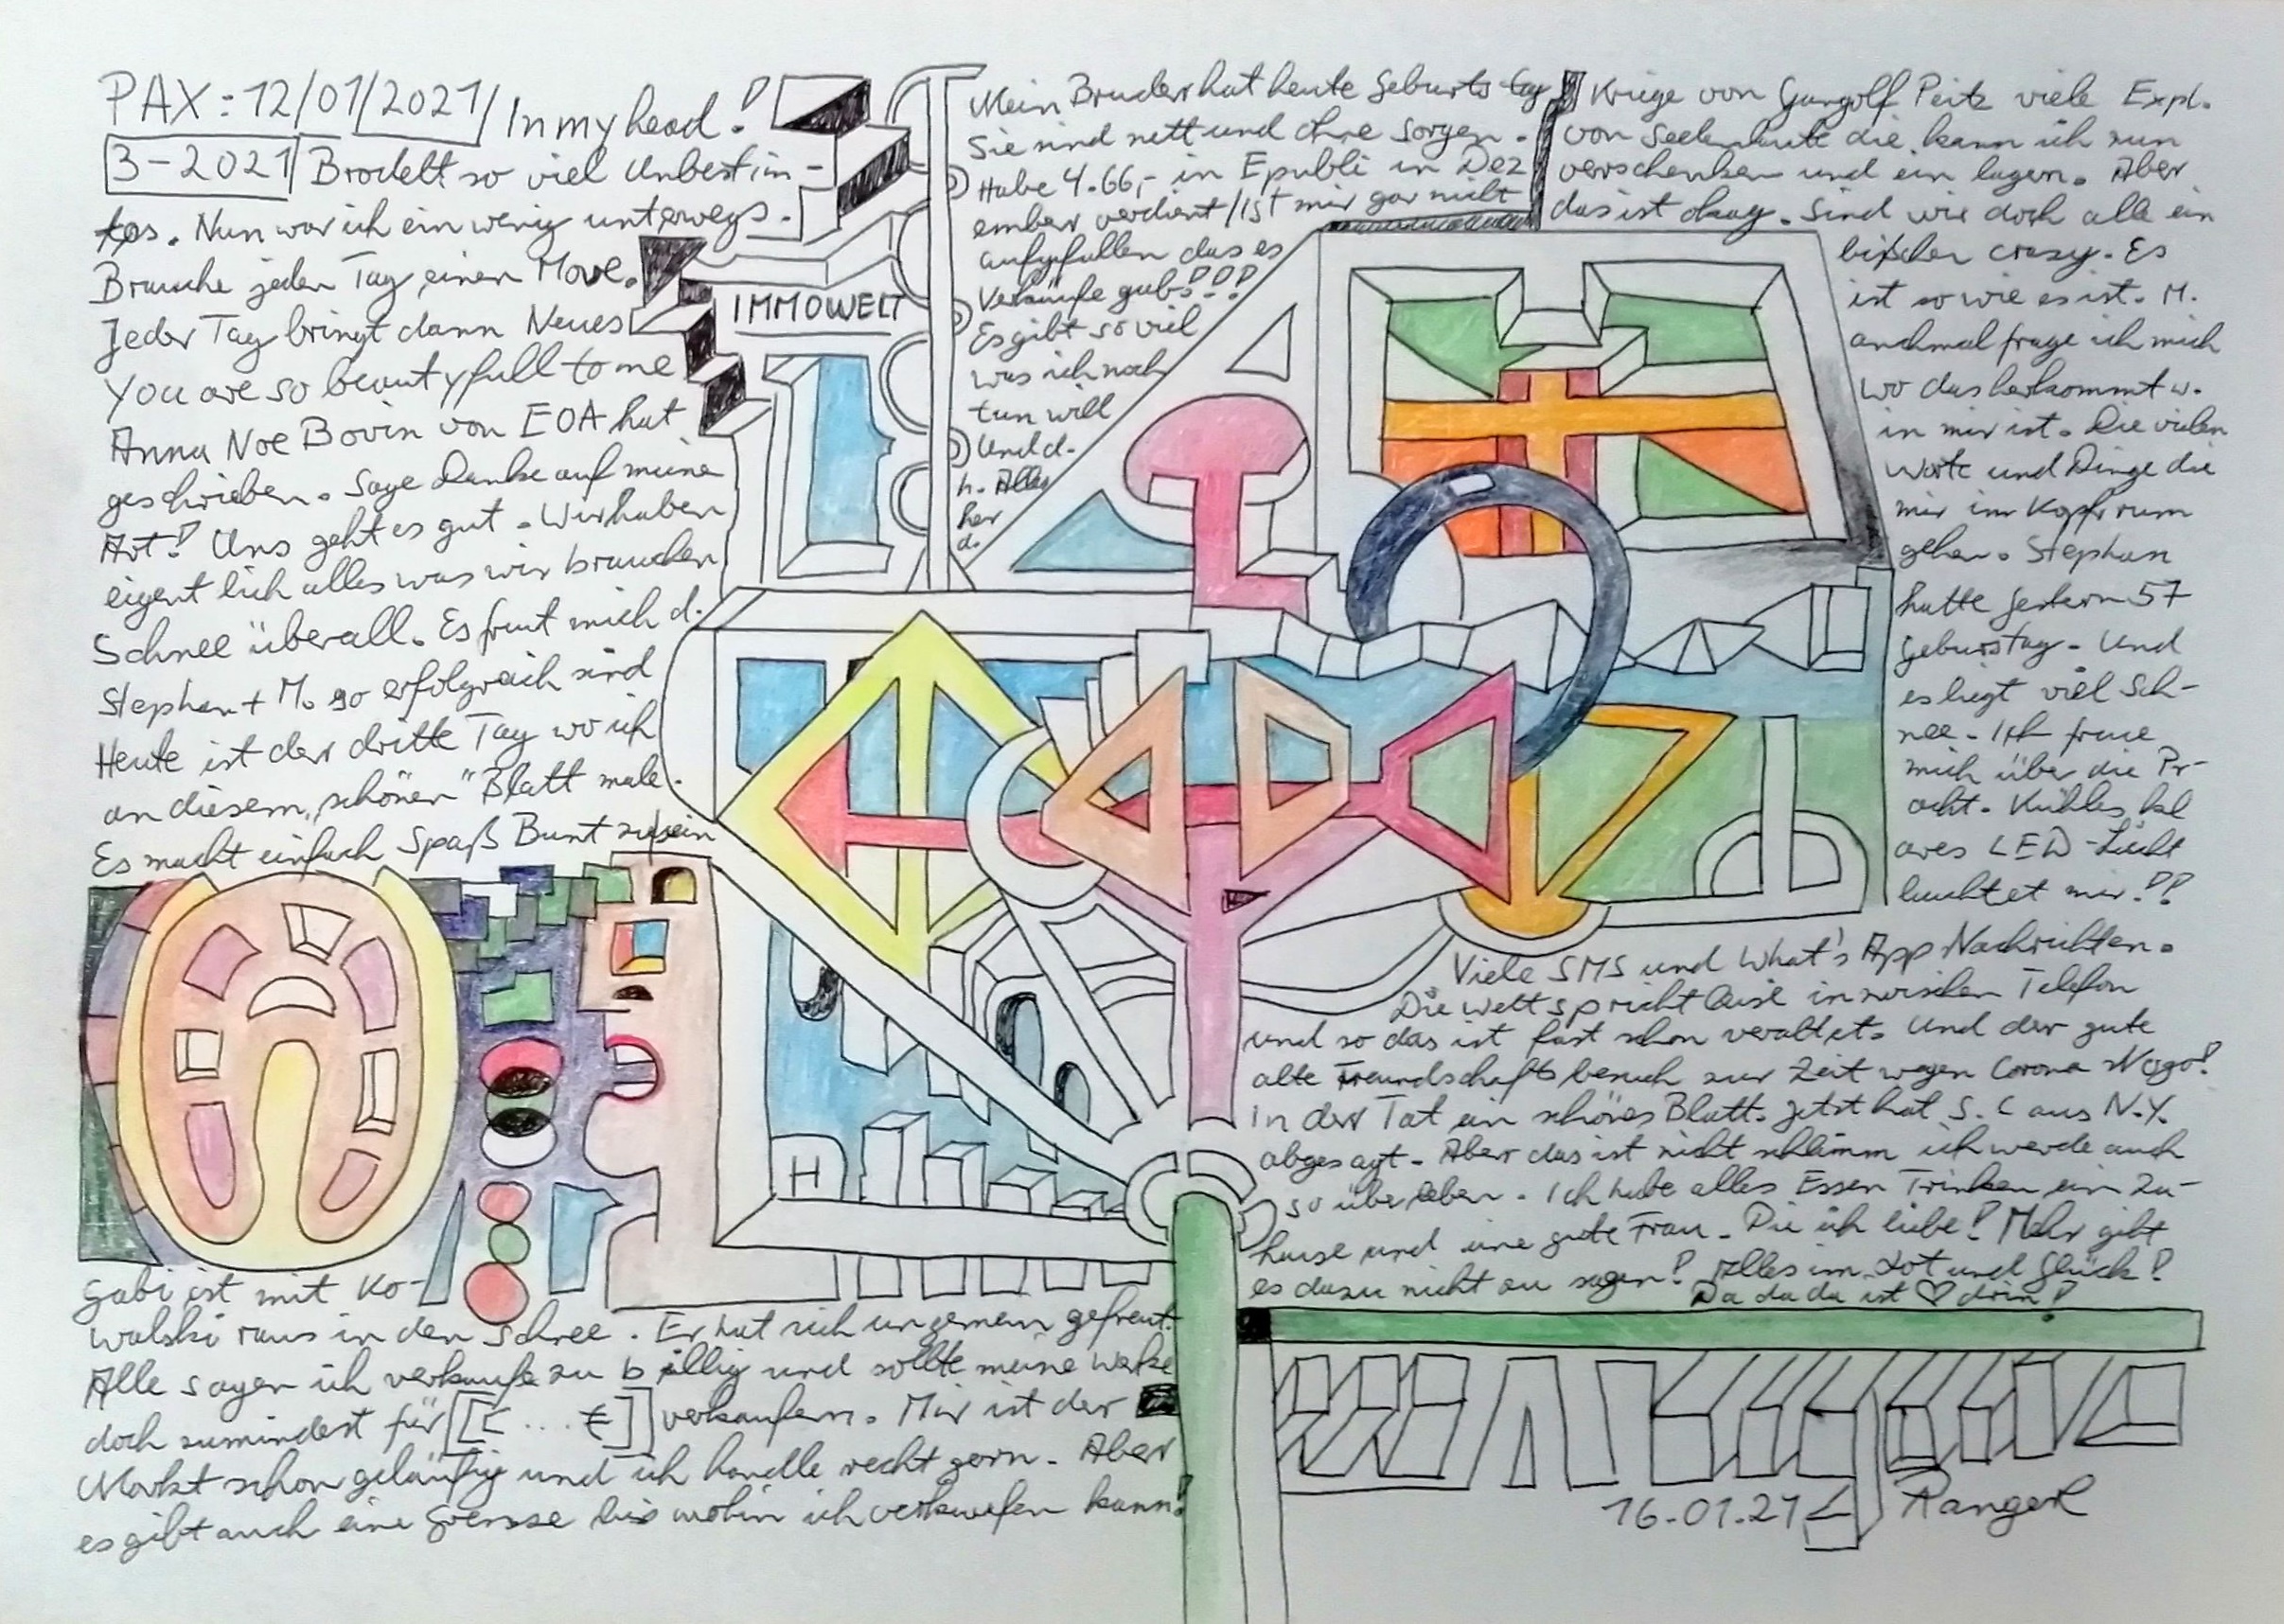 PAX: 12/01/2021/ In my head!
3-2021 Brodelt so viel Unbestim-
tes. Nun war ich ein wenig unterwegs.
Brauche jeden Tag einen Move.
Jeder Tag bringt dann Neues
You are so beautyfull to me
Anna Noe Bovin von EOA hat
geschrieben. Sage Danke auf meine
Art! Uns geht es gut. Wir haben
eigentlich alles was wir brauchen
Schnee überall. Es freut mich d.
Stephan + M. so erfolgreich sind
Heute ist der dritte Tag wo ich
an diesem "schönen" Blatt male.
Es macht einfach Spaß Bunt zu sein
IMMOWELT
Mein Bruder hat heute Geburtstag
Sie sind nett und ohne Sorgen.
Habe 4.66,- in Epubli in Dez
ember verdient/Ist mir gar nicht
aufgefallen das es
Verkäufe gab!!!
Es gibt so viel
was ich noch
tun will
Und d.
h. Alles
her
d.
Kriege von Gangolf Peitz viele Expl.
von Seelenlaute die kann ich nun
verschenken und ein lagern. Aber
das ist okay. Sind wir doch alle ein
bißchen crazy. Es
ist so wie es ist. M.
anchmal frage ich mich
wo das herkommt w.
in mir ist. Die vielen
Worte und Dinge die
mir im Kopf rum
gehen. Stephan
hatte gestern 57
Geburstag. Und
es liegt viel Sch-
nee. Ich freue
mich über die Pr-
acht. Kühles kl
ares LED-Licht
leuchtet mir!!
Viele SMS und What's App Nachrichten.
Die Welt spricht leise inzwischen Telefon
und so das ist fast schon veraltet. Und der gute
alte Freundschaftsbesuch zur Zeit wegen Corona Nogo!
In der Tat ein schönes Blatt. Jetzt hat S. C aus N.Y.
abgesagt. Aber das ist nicht schlimm ich werde auch
so überleben. Ich habe alles Essen Trinken ein Zu-
hause und eine gute Frau. Die ich liebe! Mehr gibt
es dazu nicht zu sagen! Alles im Lot und Glück!
Da da da ist ♡ drin!
H
Gabi ist mit Ko-
walski raus in den Schnee. Er hat sich ungemein gefreut.
Alle sagen ich verkaufe zu billig und sollte meine Werke
doch zumindest für [[€ ... €]] verkaufen. Mir ist der
Markt schon geläufig und ich handle recht gern. Aber
es gibt auch eine Grensse bis wohin ich verkaufen kann!
16.01.21 Ranger